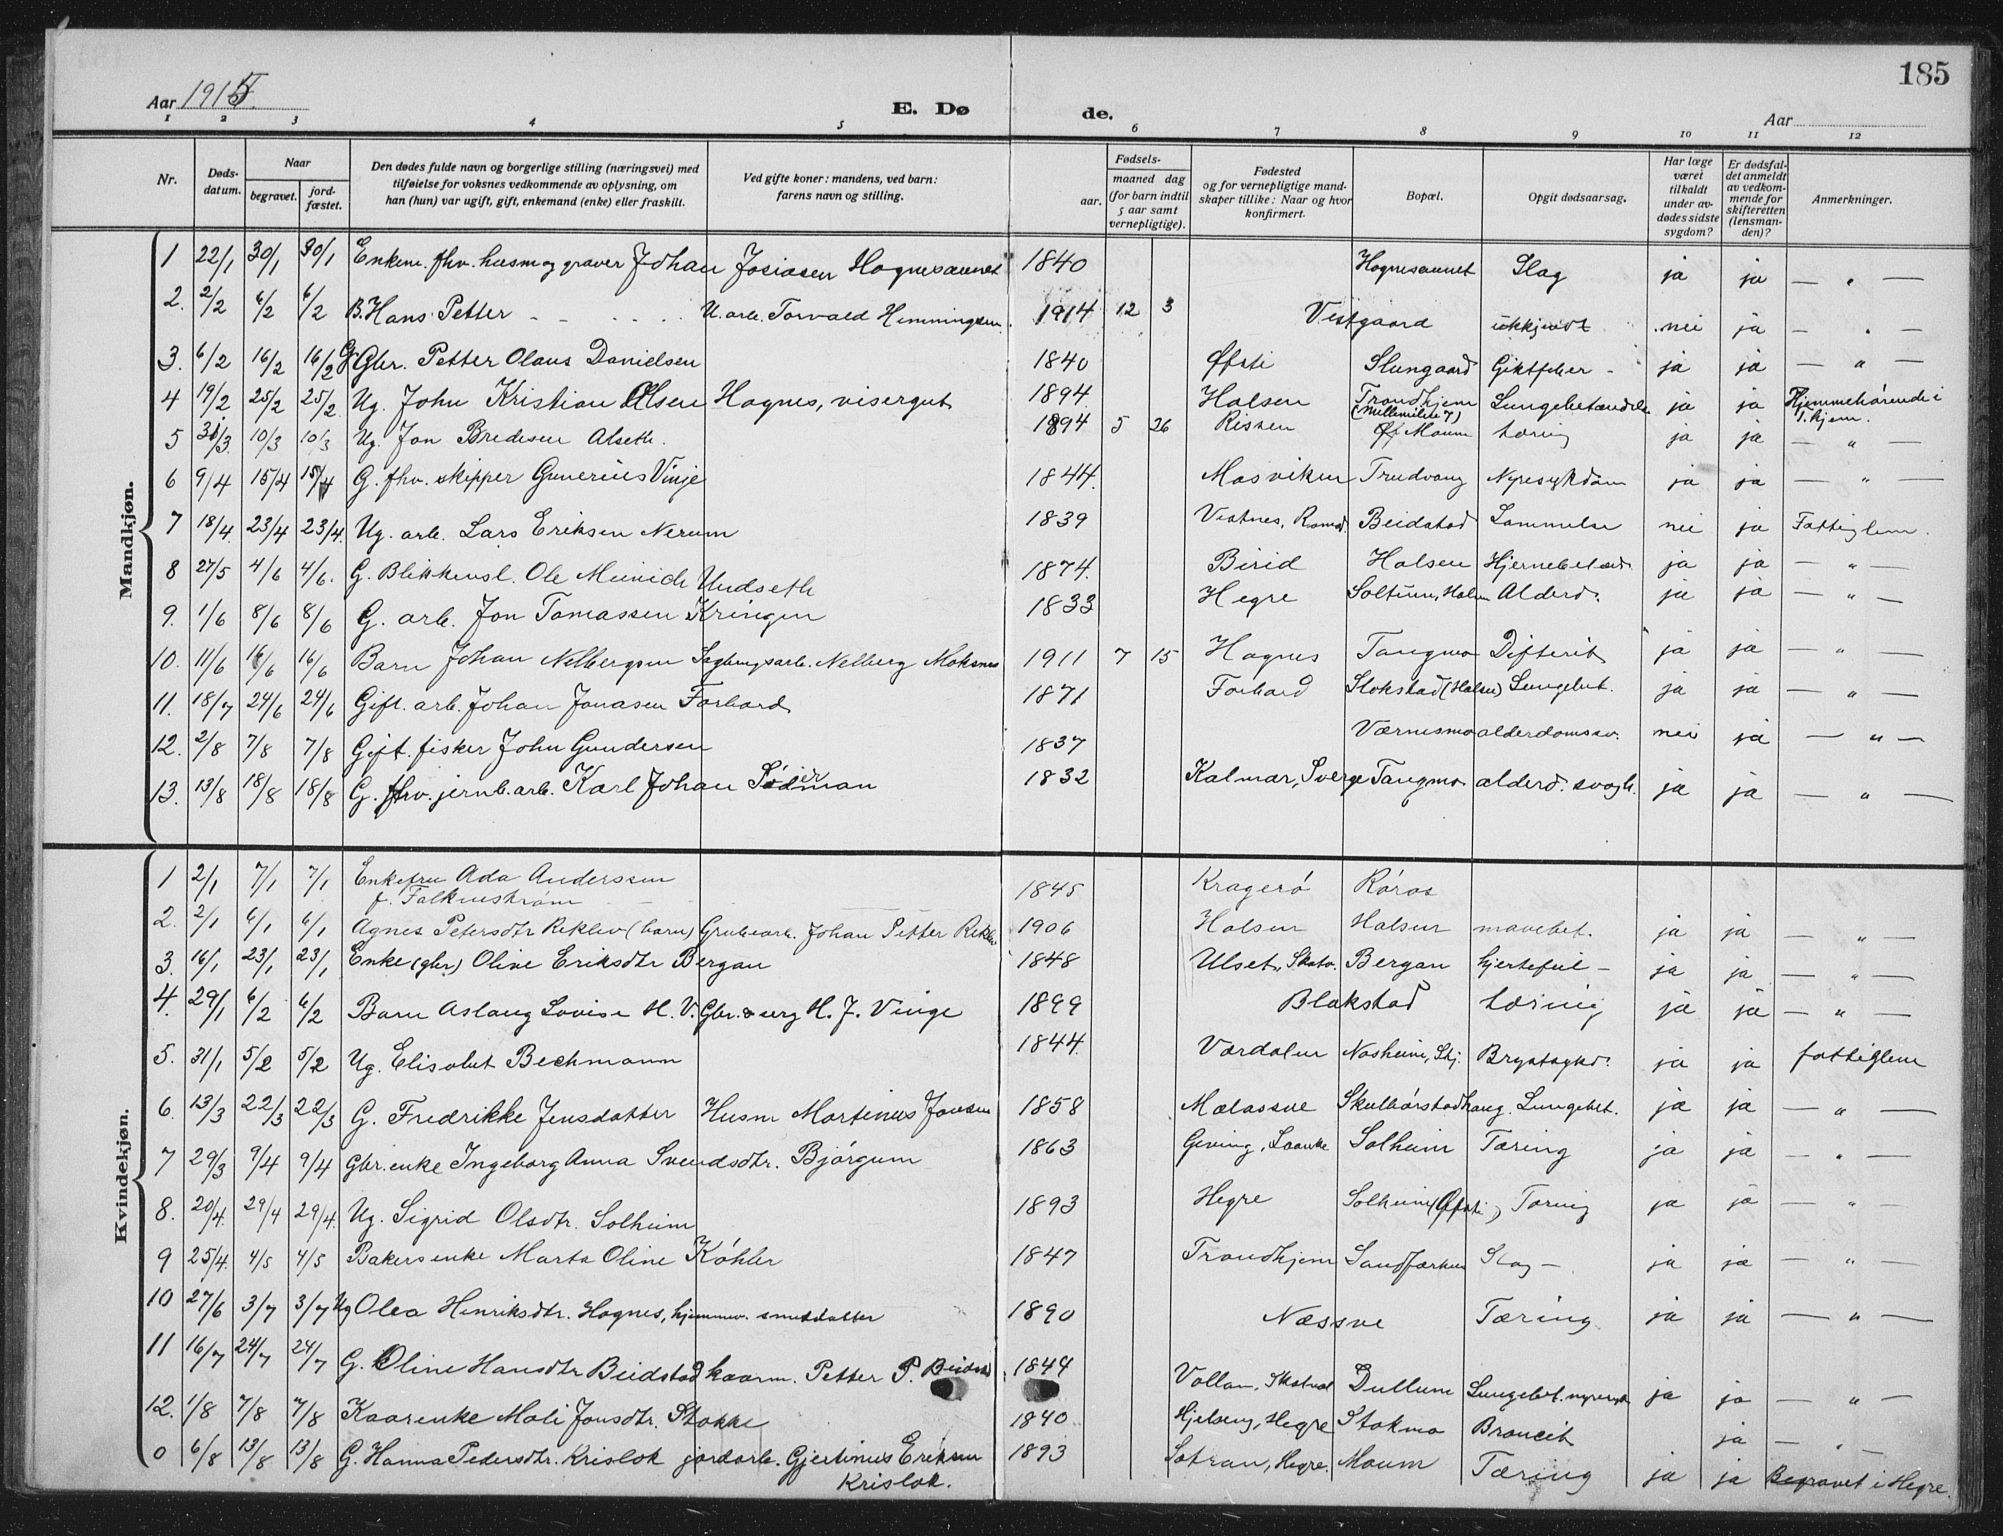 185
Aar 1915. E. Døde. Aar
1 2 3 4 5 6 7 8 9 10 11 12
Nr. Døds-datum. Naar begravet. jord-fæstet. Den dødes fulde navn og borgerlige stilling (næringsvei) med tilføielse for voksnes vedkommende av oplysning, om han (hun) var ugift, gift, enkemand (enke) eller fraskilt. Ved gifte koner: mandens, ved barn: farens navn og stilling. Fødsels- aar. maaned dag (for barn indtil 5 aar samt vernepligtige). Fødested og for vernepligtige mand-skaper tillike: Naar og hvor konfirmert. Bopæl. Opgit dødsaarsag. Har læge været tilkaldt under av-dødes sidste sygdom? Er dødsfal-det anmeldt av vedkom-mende for skifteretten (lensman-den)? Anmerkninger.
Mandkjøn.
1 22/1 30/1 30/1 Enkem. fhv. husm og graver Johan Josiasen Hognesaunet 1840 Hognesaunet Slag ja ja — " —
2. 2/2 6/2 6/2 B. Hans Petter U. arb. Torvald Hemmingsen. 1914 12 3 Vistgaard ukjendt nei ja — " —
3. 6/2 16/2 16/2 G. Gbr. Petter Olaus Danielsen 1840 Øfsti Slungaard Giktfeber - ja ja — " —
4 19/2 25/2 25/2 Ug. John Kristian Olsen Hognes, visergut 1894 Halsen Trondhjem (Mellemilete 7) Lungebetændelse ja ja Hjemmehørende i T.hjem.
5 31/3 10/3 10/3 Ug. Jon Bredesen Alseth. 1894 5 26 Rissen Øf. Moum tæring ja ja — " —
6 9/4 15/4 15/4 G. fhv. skipper Gunerius Vinje 1844. Mosviken Trudvang Nyresykdom ja ja — " —
7 18/4. 23/4 23/4. Ug. arb. Lars Eriksen Nerum 1839 Vestnes, Romsd. Beidstad Lammelse nei ja Fattiglem.
8 27/5 4/6 4/6. G. Blikkensl. Ole Meinich Undseth 1874. Birid Halsen Hjernebetænd. ja ja — " —
9. 1/6 8/6 8/6 G. arb. Jon Tomassen Kringen 1833 Hegre Soltun, Halsen Alderd. ja ja — " —
10. 11/6 16/6 16/6 Barn Johan Nelbergsen Sagbrugsarb. Nelberg Moksnes 1911 7 15 Hognes Tangmo Difterit ja ja — " —
11. 18/7 24/6 24/6 Gift. arb. Johan Jonasen Forbord 1871 Forbord Slokstad (Halsen) Lungebet. ja ja — " —
12. 2/8 7/8 7/8 Gift. fisker John Gundersen 1837 Værnesmo alderdomssv. nei ja — " —
13. 13/8 18/8 18/8 G. fhv. jernb. arb. Karl Johan Söderman 1832 Kalmar, Sverge Tangmo alderd. svagh. ja ja — " —
Kvindekjøn.
1 2/1 7/1 7/1 Enkefru Ada Anderssen 1845 Kragerø Røros
f. Falkenstrøm
2. 2/1 6/1 6/1 Agnes Petersdtr Reklev (barn) Grubearb. Johan Petter Reklev 1906 Halsen Halsen mavebet. ja ja — " —
3. 16/1 23/1 23/1 Enke (gbr) Oline Eriksdtr Bergan 1848 Ulset, Skatv. Bergan hjertefeil - ja ja — " —
4. 29/1 6/2 6/2 Barn Aslaug Lovise H. V. Gbr. & urg H. J. Vinge 1899 Blakstad tæring ja ja — " —
5. 31/1 5/2 5/2 Ug. Elisabet Bechmann 1844. Værdalen Nasheim, Stj. Brystsykd. ja ja fattiglem
6. 13/3 22/3 22/3 G. Fredrikke Jensdatter Husm Martinus Jonsen 1858 Mælassve Skulbørstadhaug. Lungebet. ja ja — " —
7 29/3 9/4 9/4 Gbr. enke Ingeborg Anna Svendsdtr. Bjørgum 1863 Geving, Laanke Solheim Tæring ja ja — " —
8. 20/4. 29/4 29/4. Ug. Sigrid Olsdtr. Solheim 1893 Hegre Solheim (Øfsti) Tæring ja ja — " —
9 25/4. 4/5 4/5 Bakers enke Marta Oline Køhler 1847 Trondhjem Sandfærhus Slag — ja ja — " —
10 27/6 3/7 3/7 Ug Olea Henriksdtr. Hognes, hjemmev. smeddatter 1890 Næssve Tæring ja ja — " —
11 16/7 24/7 24/7 G. Oline Hansdtr Beidstad kaarm. Petter P. Beidstad 1844 Vollan, Skatval Dullum Lungebet. nyresyk ja ja — " —
12. 1/8 7/8 7/8 Kaarenke Mali Jonsdtr. Stokke 1840 Hjelseng, Hegre Stokmo Broncit ja — " —
0 6/8 13/8 13/8 G. Hanna Pedersdtr. Krislok jordarb. Gjertinus Eriksen 1893 Sotran, Hegre. Moum Tæring ja ja Begravet i Hegre.
Krislok.